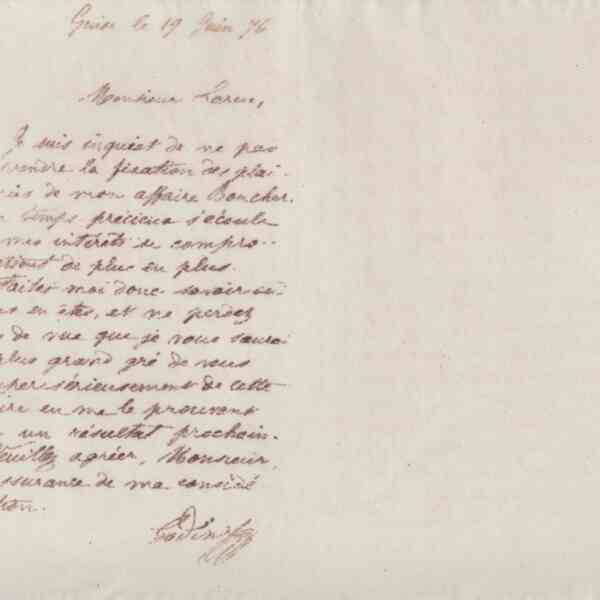 Guise le 19 Juin 76
Monsieur Larue,
Je suis inquiet de ne pas
prendre la fixation des plai-
de mon affaire Boucher.
temps précieux s'écoule
mes intérêts se compro-
de plus en plus.
Faites moi donc savoir où
en êtes, et ne perdez
de vue que je vous saurai
plus grand gré de vous
sérieusement de cette
en me le prouvant
un résultat prochain.
Veuillez agréer, Monsieur,
assurance de ma considé
tion.
Godin